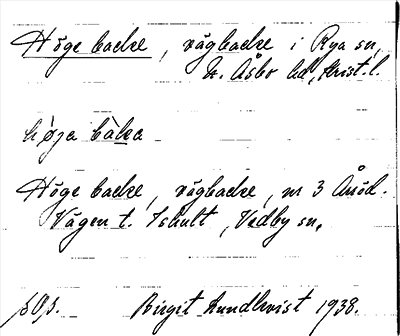 Höge backe, vägbacke i Rya sn,
N. Åsbo hd, Krist. l.
høja bàka
Höge backe, vägbacke, nr 3 Åröd.
Vägen t. Ishult, Vedby sn.
Birgit Lundkvist 1938.